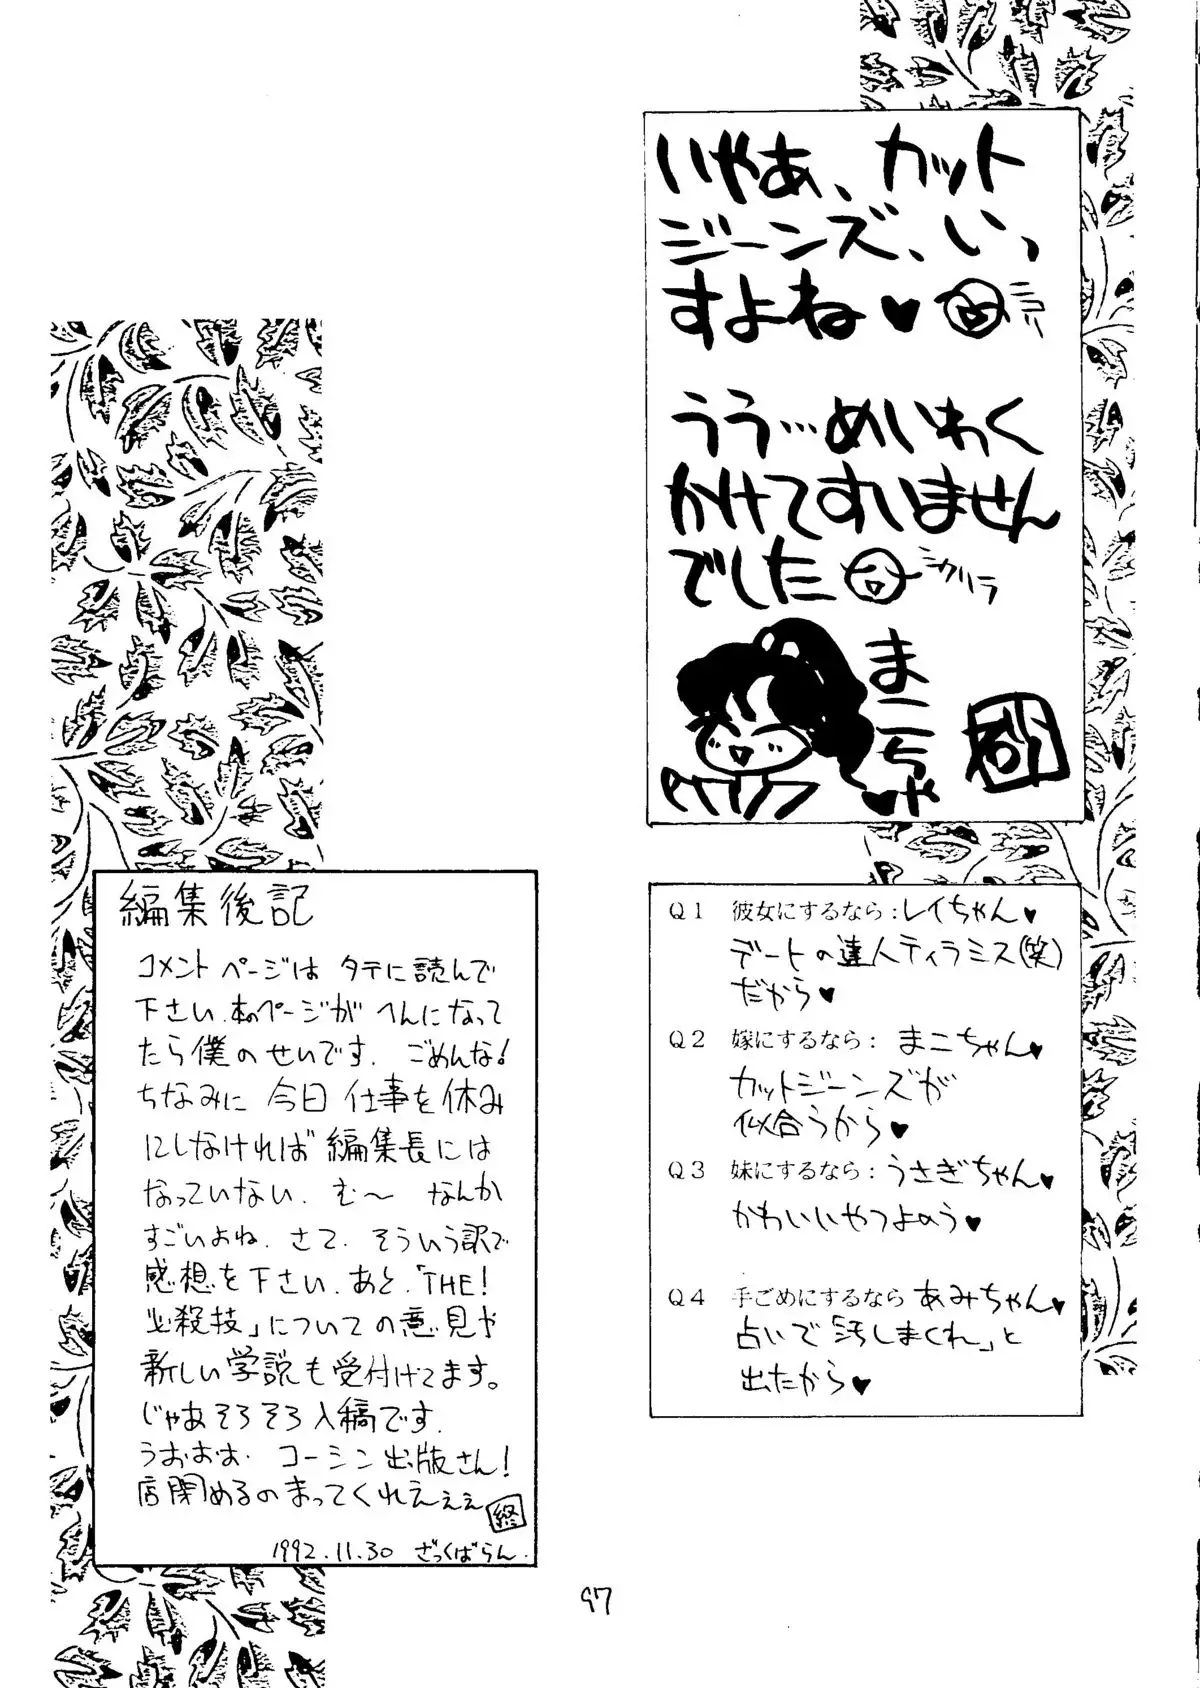 いやあ、カット
ジーンズ、いっ
すよね♥
うう…めいわく
かけてすいません
でした
シクリラ
まこちゃ
Q1 彼女にするなら：レイちゃん♥
デートの達人ティラミス(笑)
だから♥
Q2 嫁にするなら：まこちゃん♥
カットジーンズが
似合うから♥
Q3 妹にするなら：うさぎちゃん♥
かわいいやつよのう♥
Q4 手ごめにするなら あみちゃん♥
占いで「汚しまくれ」と
出たから♥
編集後記
コメントページは タテに読んで
下さい．本のページが へんになって
たら僕のせいです．ごめんな！
ちなみに 今日 仕事を休み
にしなければ編集長には
なっていない．む〜 なんか
すごいよね．さて．そういう訳で
感想を下さい．あと．「THE！
必殺技」についての意見や
新しい学説も受付けてます。
じゃあそろそろ入稿です．
うおおお．コーシン出版さん！
店閉めるのまってくれえぇぇ
終
1992.11.30 ざっくばらん．
97